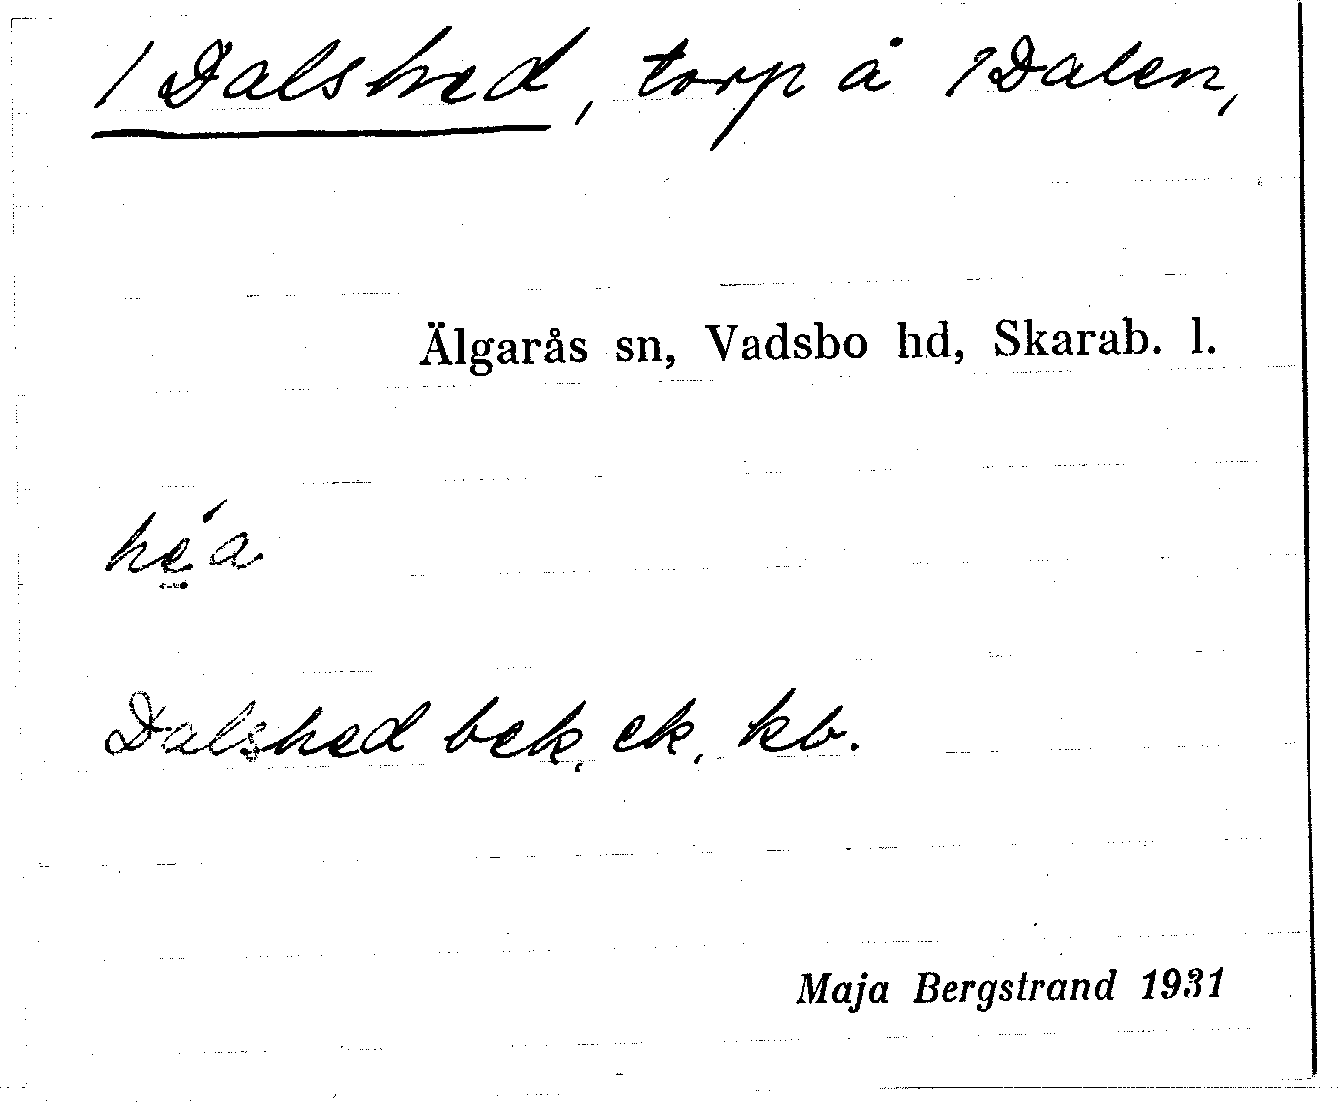 /Dalshed, torp å /Dalen,
Älgarås sn, Vadsbo hd, Skarab. l.
he̱´a
Dalshed bek, ek, kb.
Maja Bergstrand 1931